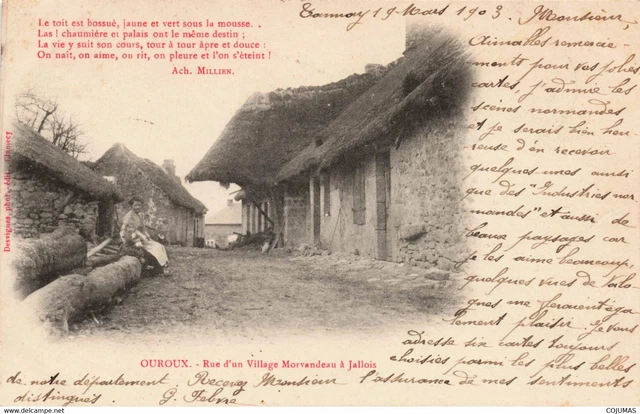 Le toit est bossué, jaune et vert sous la mousse. .
Las ! chaumière et palais ont le même destin ;
La vie y suit son cours, tour à tour âpre et douce :
On naît, on aime, ou rit, on pleure et l'on s'éteint !
Ach. MILLIEN.
Tannay 19 Mars 1903. Monsieur,
Aimables remercie-
ments pour vos jolies
cartes, j'admire les
scènes normandes
et je serais bien heu
reuse d'en recevoir
quelques unes ainsi
que des "Industries nor
mandes" et aussi de
beaux paysages car
je les aime beaucoup,
quelques vues de
ques me feraient éga
lement plaisir. Je vous
adresse six cartes toujours
choisies parmi les plus belles
de notre département. Recevez Monsieur l'assurance de mes sentiments
distingués. G. Febvre
Desvignes, phot. édit. Clamecy
OUROUX. - Rue d'un Village Morvandeau à Jallois
© delcampe.net
COJUMAS